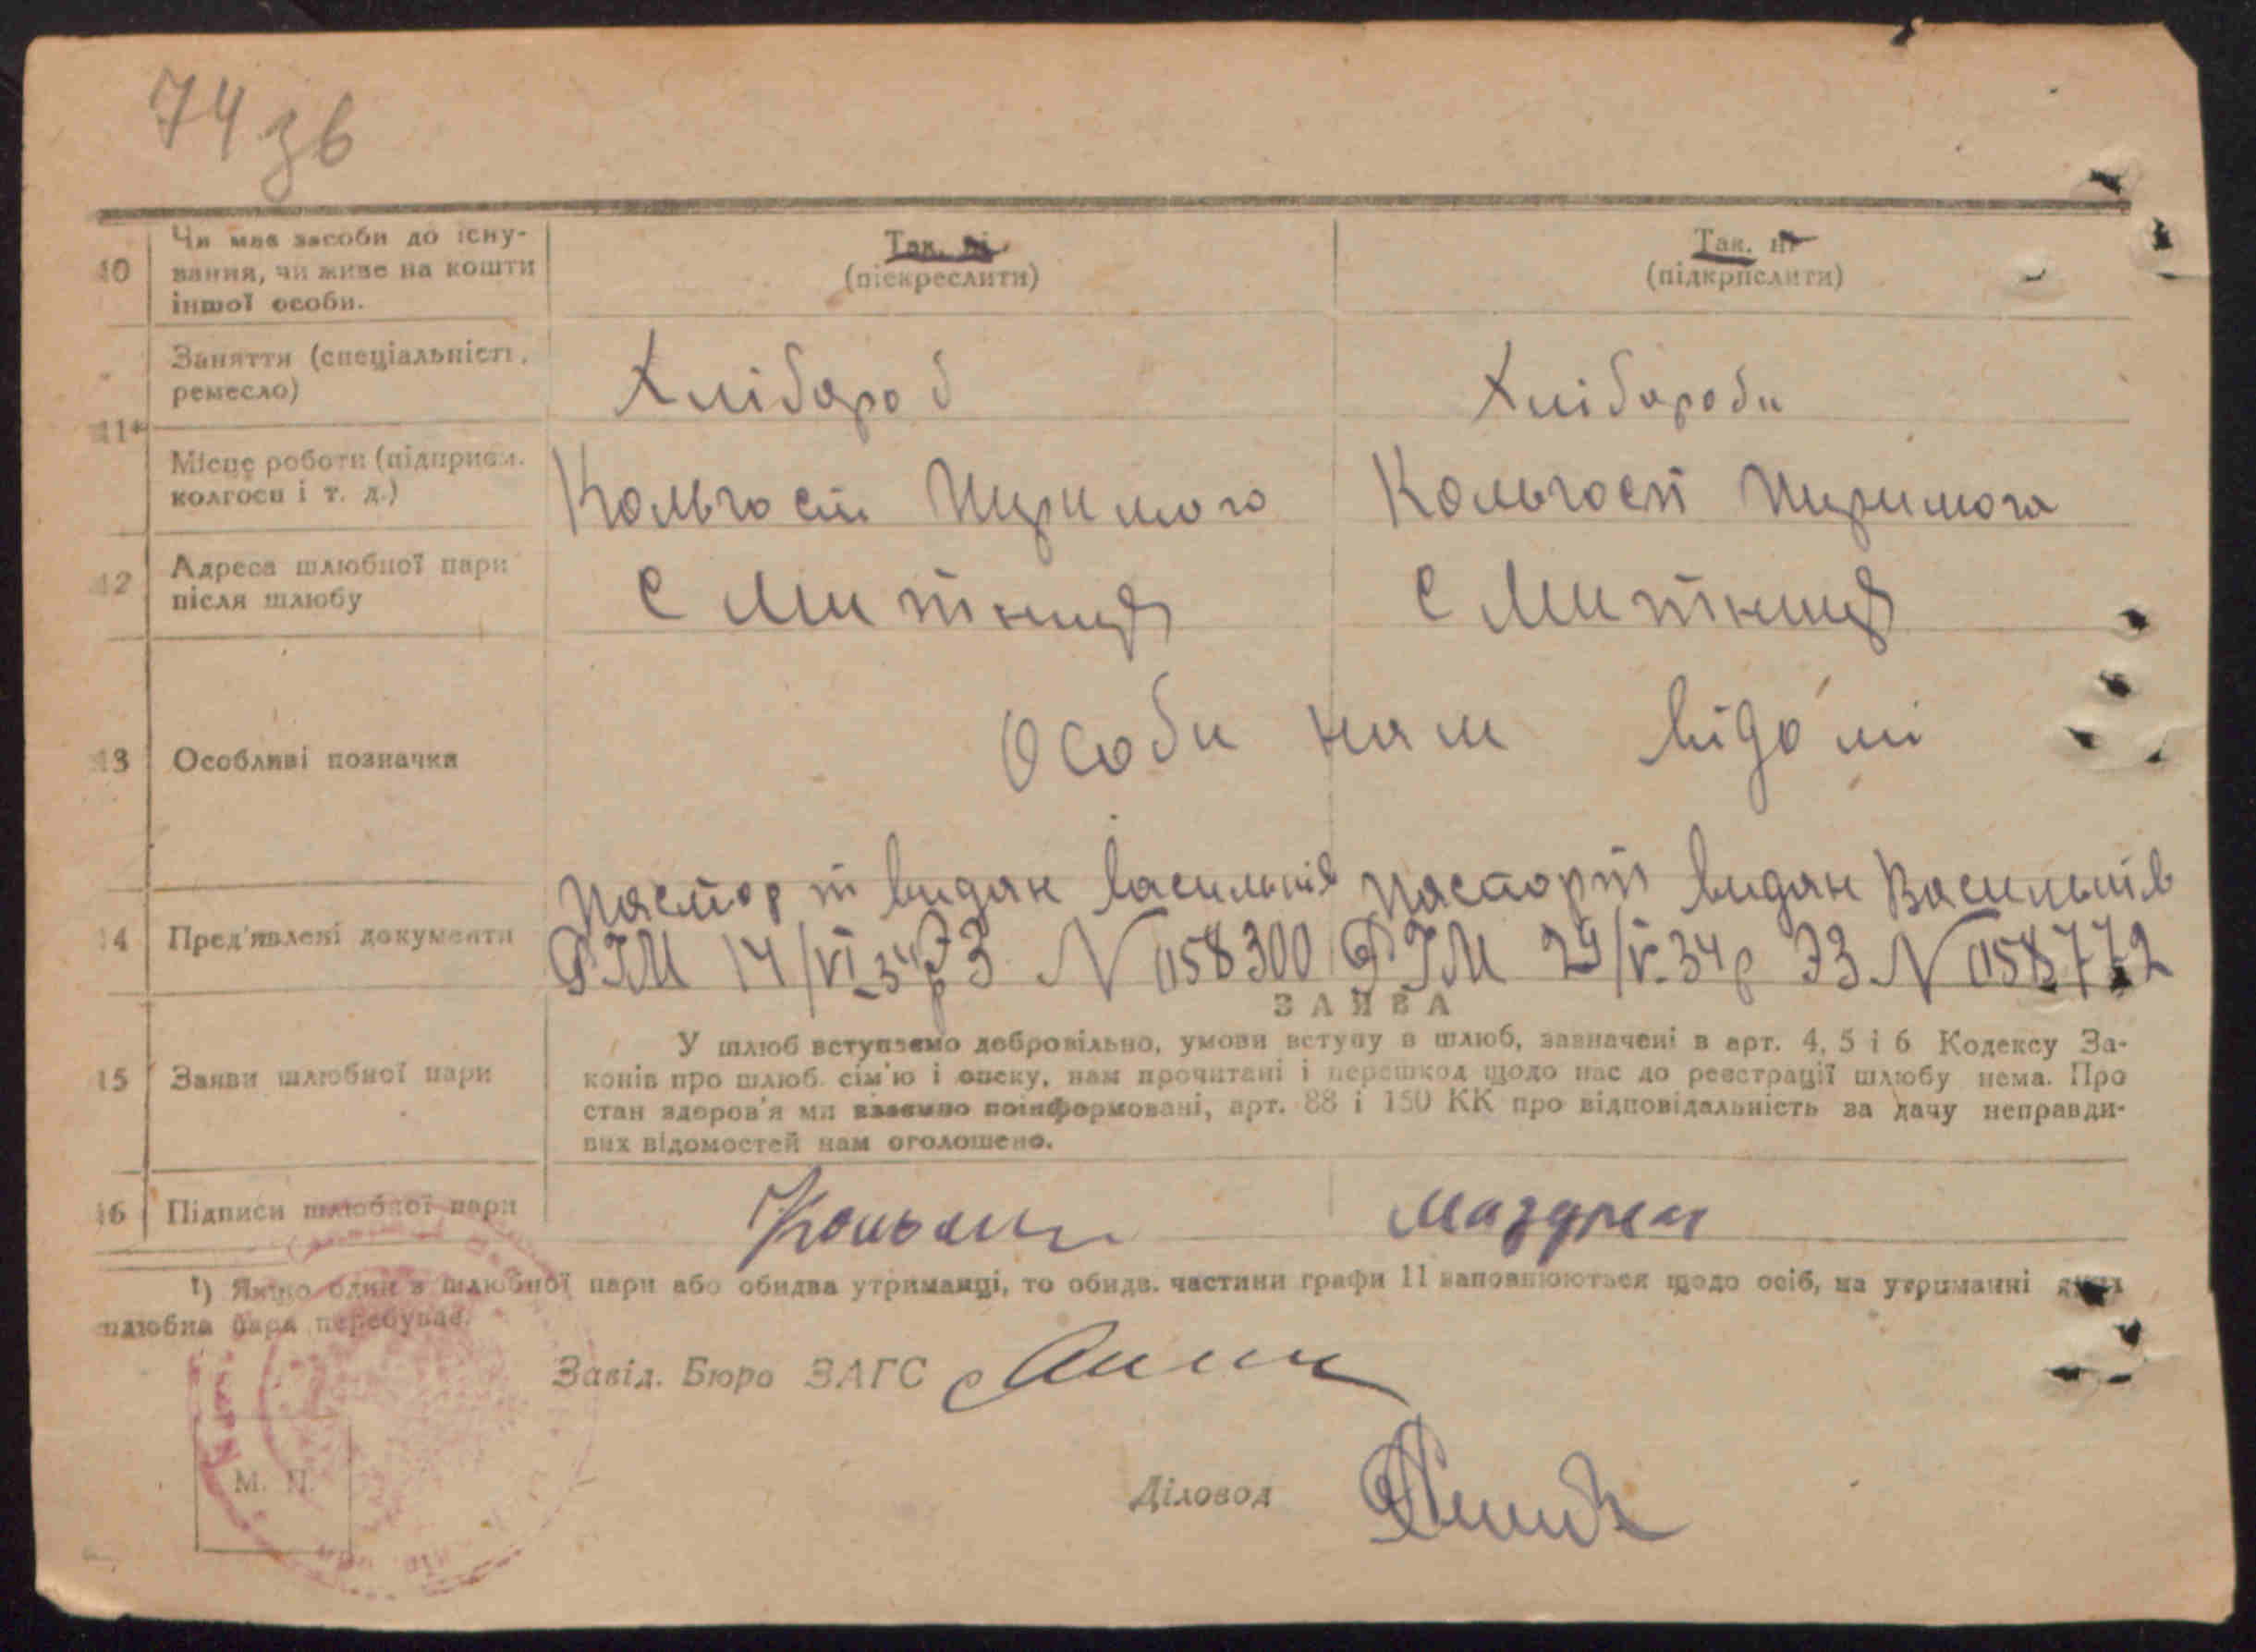 74 зв
10 Чи має засоби до існу-
вання, чи живе на кошти
іншої особи.
Так. ні
(піскреслити)
Так. ні
(підкрпслити)
11
Заняття (спеціальність,
ремесло)
Хлібароб
Хлібароби
Місце роботи (підприєм.
колгосп і т. д.)
Кольгосп Перимога
Кольгосп Перимога
12 Адреса шлюбної пари
після шлюбу
С Митниця
С Митниця
13 Особливі позначки
Особи нам відомі
14 Пред'явлені документи
паспорт видан Васильків
РІМ 14/VI-34р ЭЗ N 058300
паспорт видан Васильків
РІМ 29/V-34р ЭЗ N 058772
ЗАЯВА
15 Заяви шлюбної пари
У шлюб вступаємо добровільно, умови вступу в шлюб, зазначені в арт. 4, 5 і 6 Кодексу За-
конів про шлюб. сім'ю і опеку, нам прочитані і перешкод щодо нас до реєстрації шлюбу нема. Про
стан здоров'я ми взаємно поінформовані, арт. 88 і 150 КК про відповідальність за дачу неправди-
вих відомостей нам оголошено.
16 Підписи шлюбної пари
1) Якщо один з шлюбної пари або обидва утриманці, то обидв. частини графи 11 заповнюються щодо осіб, на утриманні яких
шлюбна пара перебуває.
Завід. Бюро ЗАГС
М. П.
Діловод